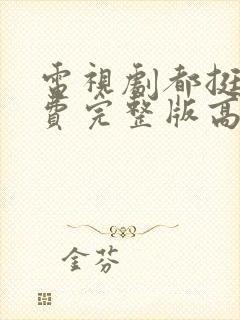 電視劇都挺
費完整版高
金芬